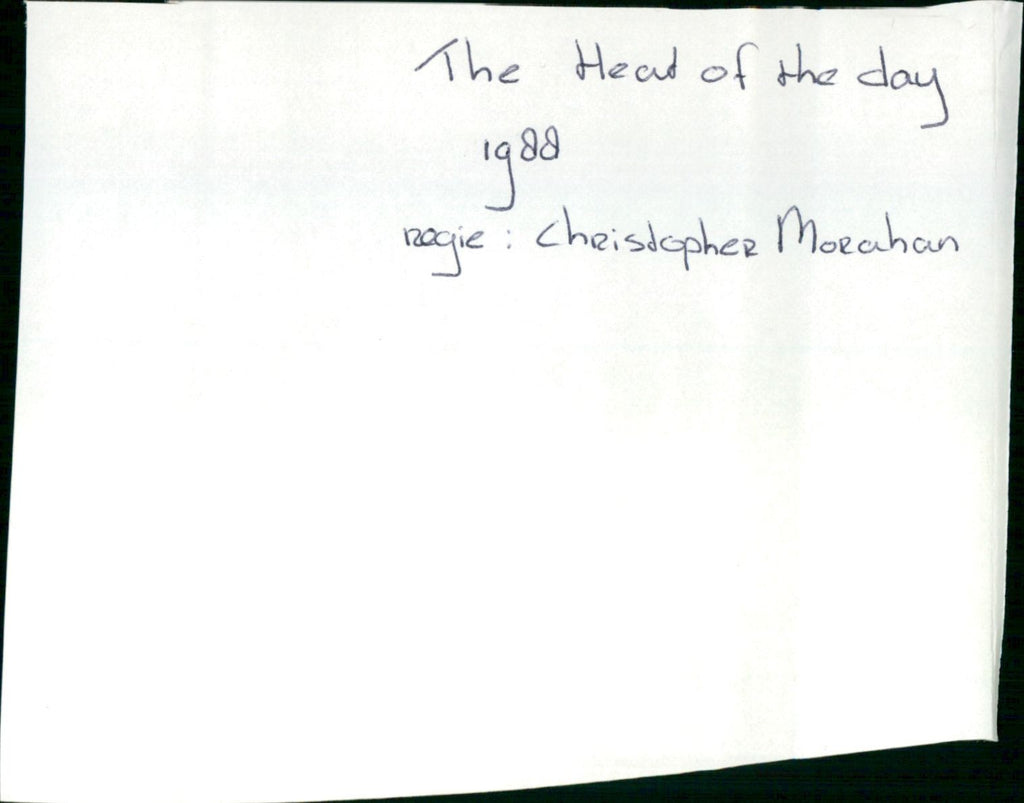 The Heat of the day
1988
regie : Christopher Morahan